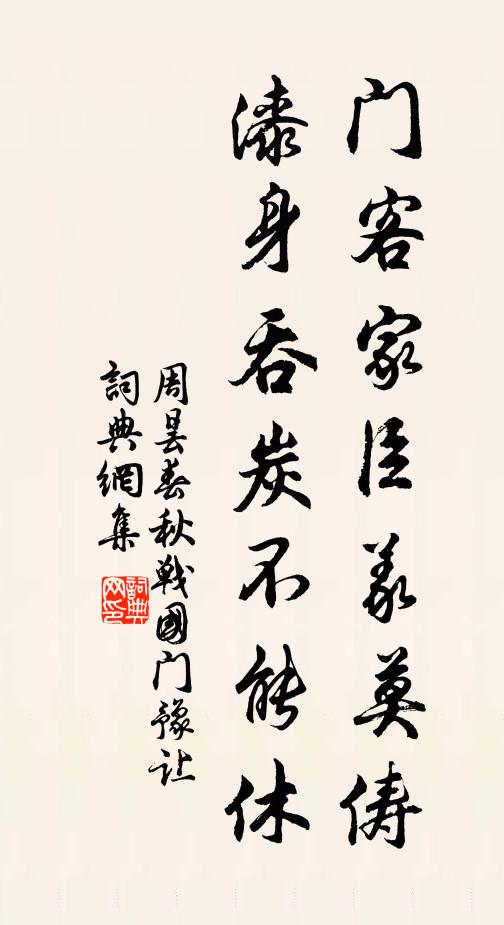 门客家臣义莫俦
漆身吞炭不能休
周昙春秋戰國门豫让
詞典網集
詞典
网印